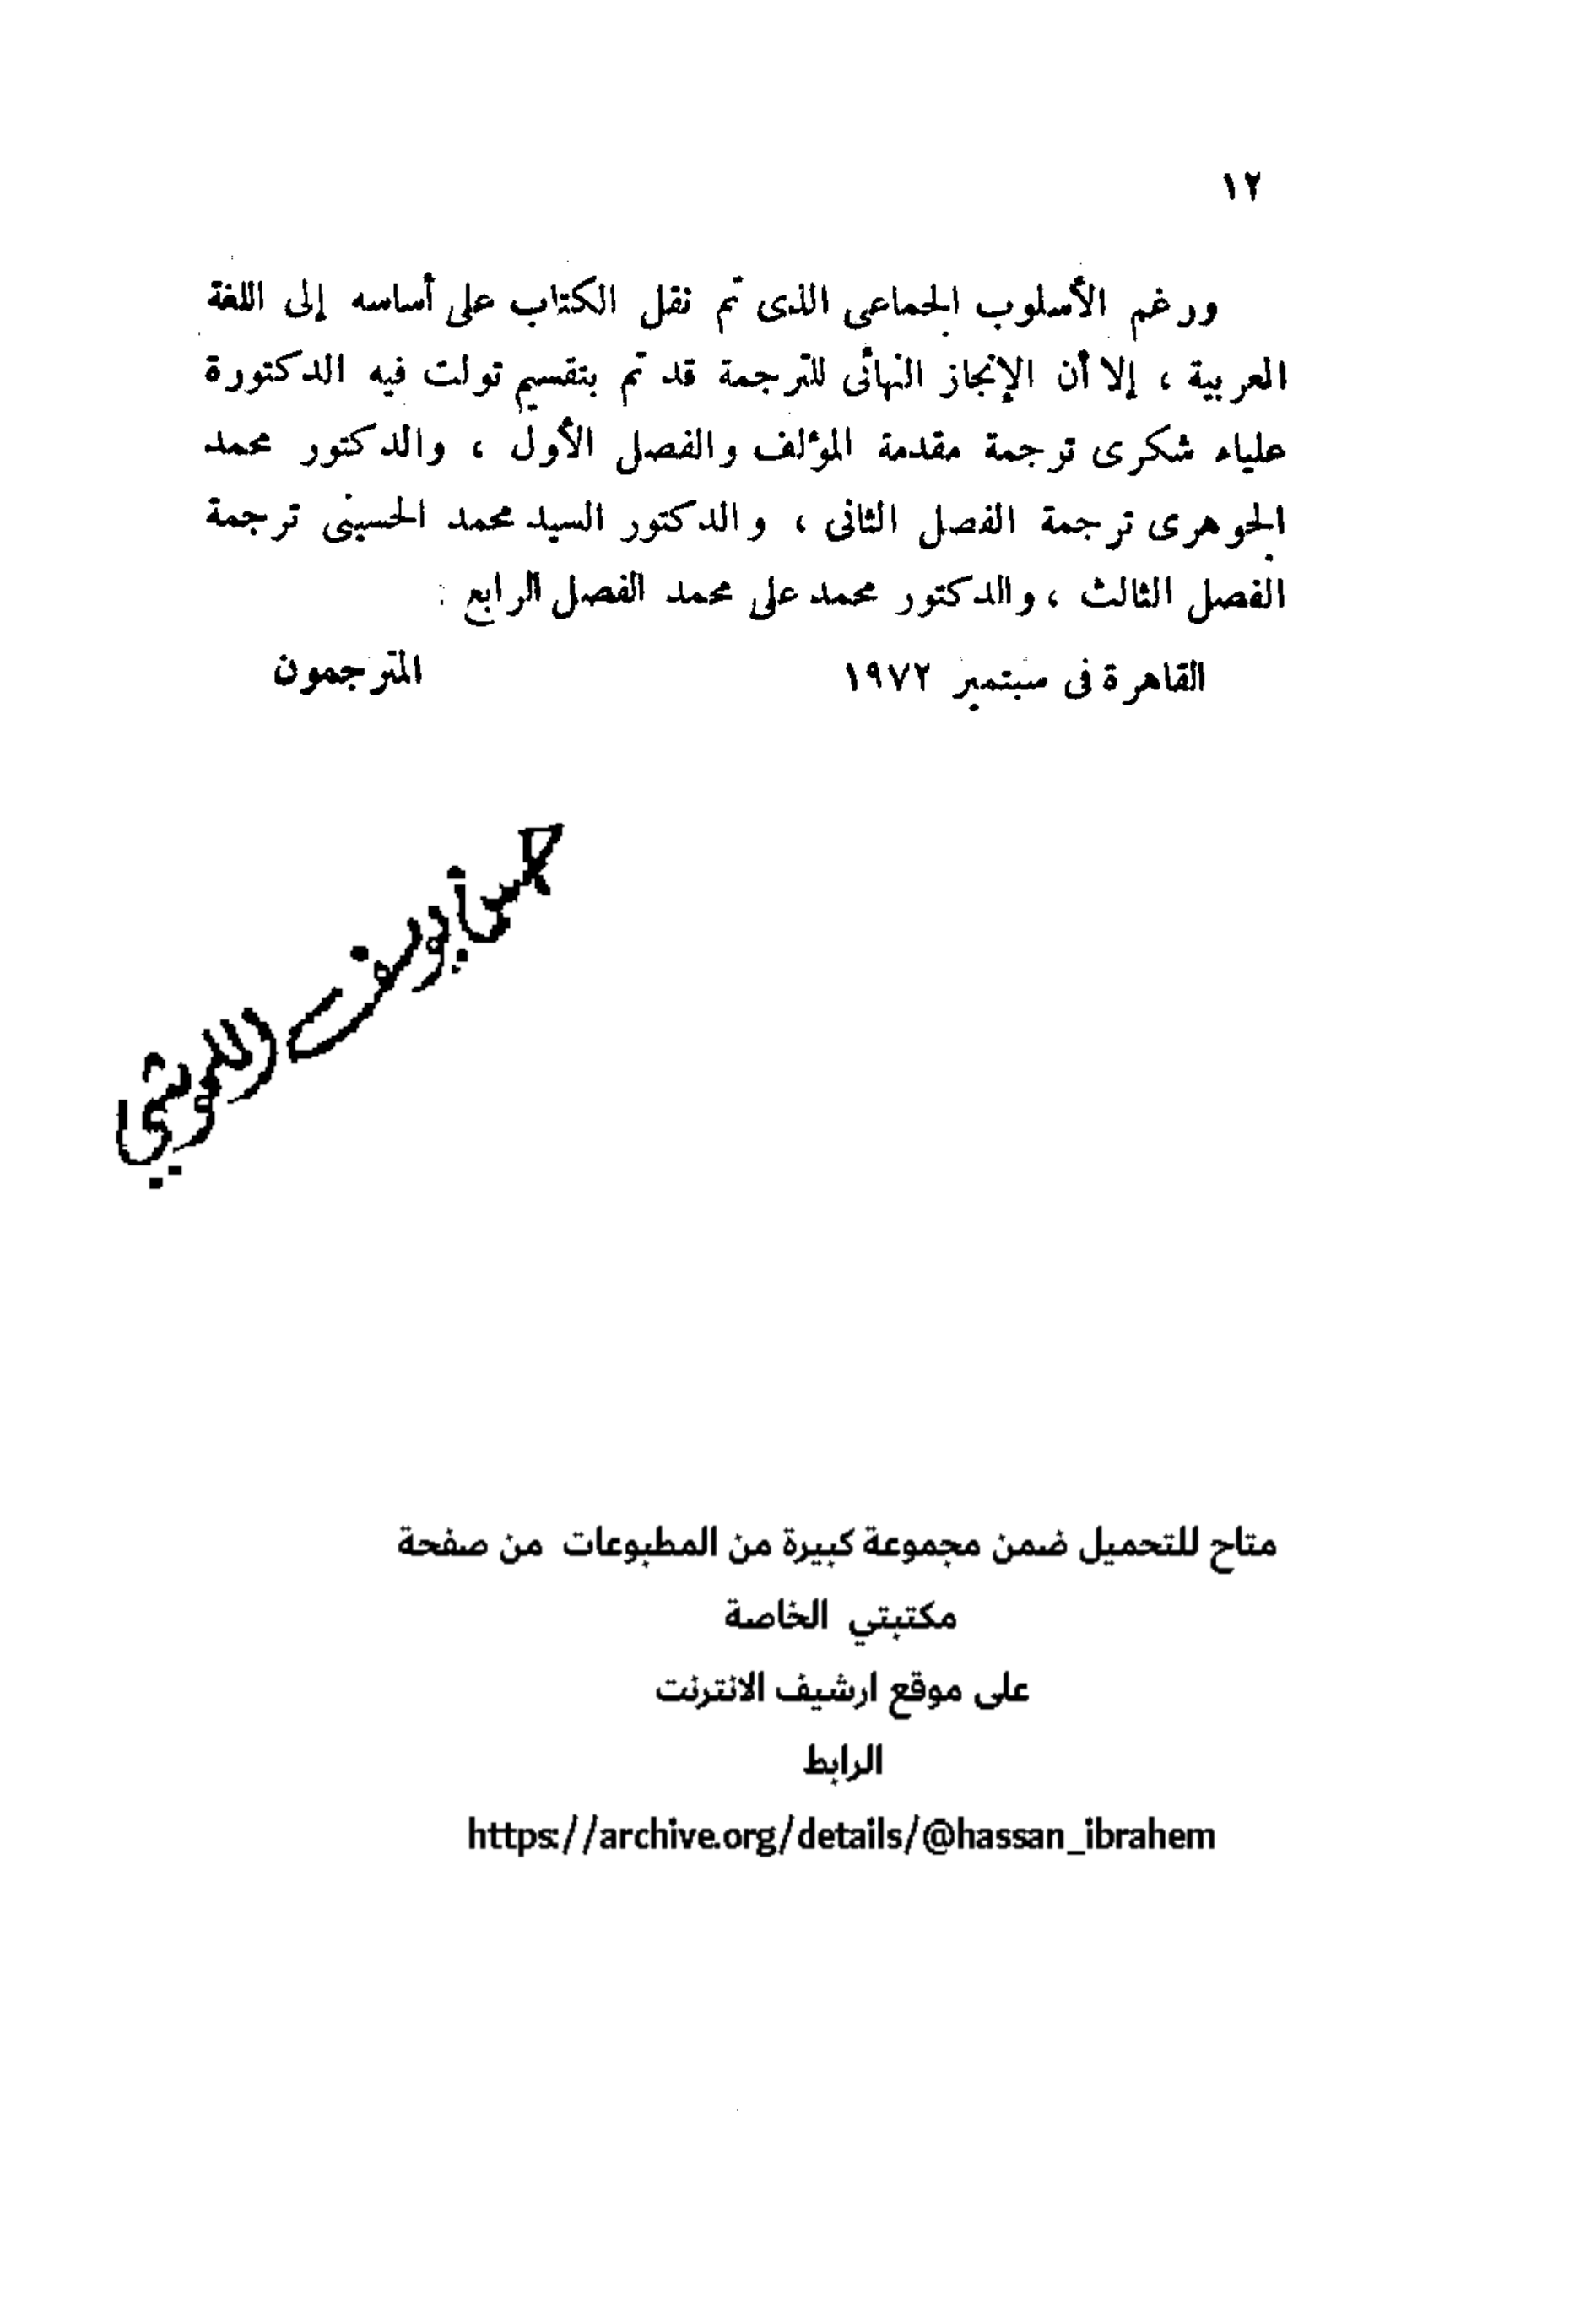 ١٢
ورغم الأسلوب الجماعى الذى تم نقل الكتاب على أساسه إلى اللغة
العربية ، إلا أن الإنجاز النهائى للترجمة قد تم بتقسيم تولت فيه الدكتورة
علياء شكرى ترجمة مقدمة المؤلف والفصل الأول ، والدكتور محمد
الجوهرى ترجمة الفصل الثانى ، والدكتور السيد محمد الحسينى ترجمة
الفصل الثالث ، والدكتور محمد على محمد الفصل الرابع :
القاهرة فى سبتمبر ١٩٧٢ المترجمون
متاح للتحميل ضمن مجموعة كبيرة من المطبوعات من صفحة
مكتبتي الخاصة
على موقع ارشيف الانترنت
الرابط
https://archive.org/details/@hassan_ibrahem